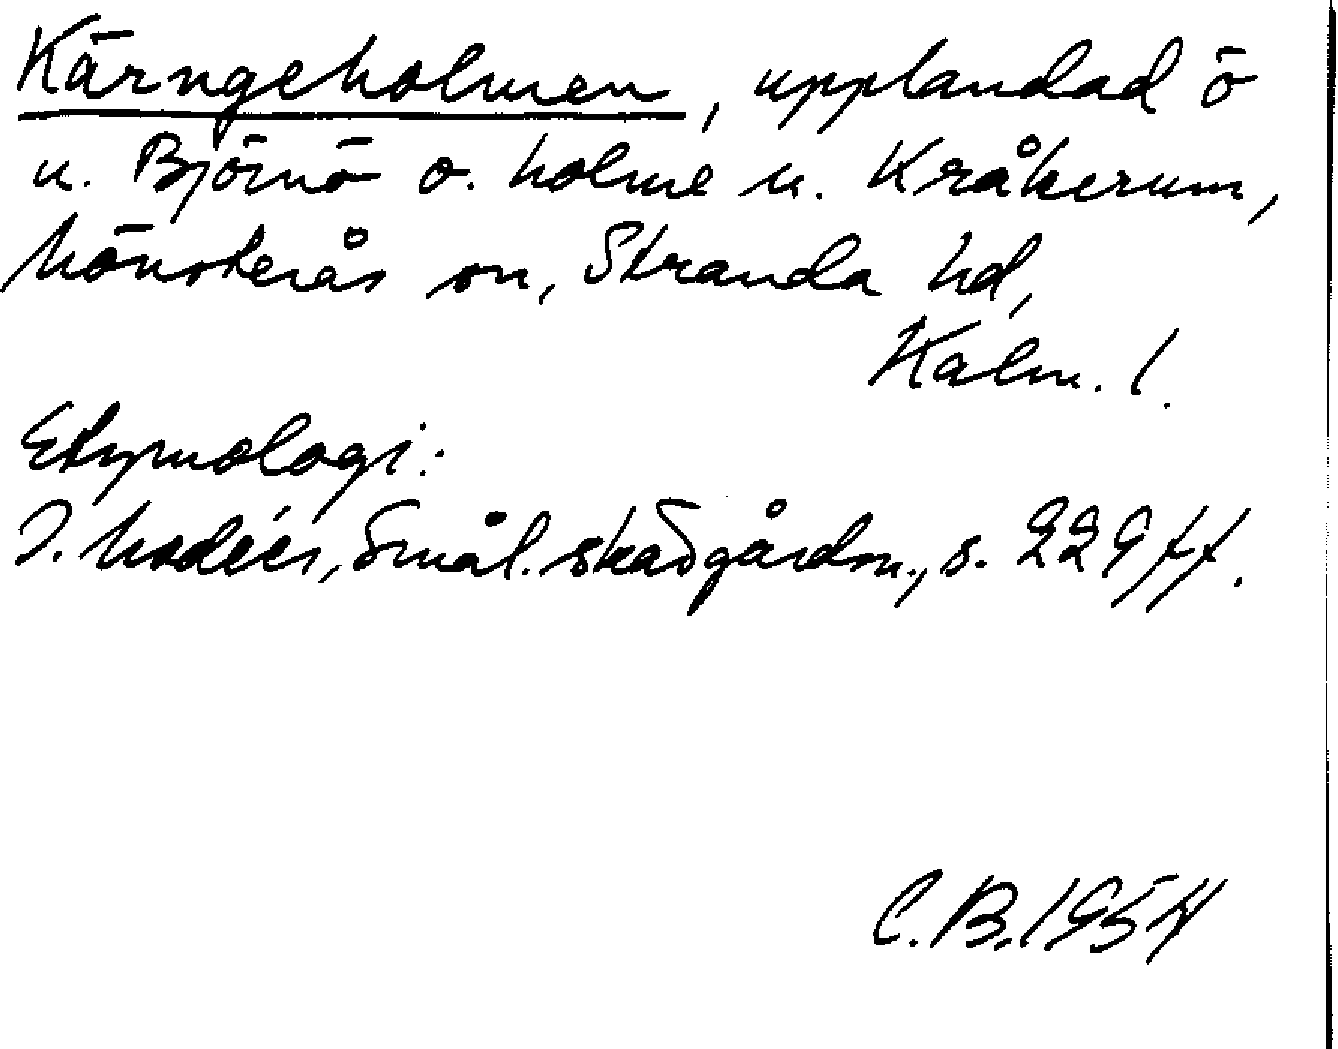 Kärngeholmen, upplandad ö
u. Björnö o. holme u. Kråkerum,
Mönsterås sn, Stranda hd,
Kalm. l.
Etymologi:
I. Modéer, Smål. skärgårdsn., s. 229 ff.
C. B. 1954